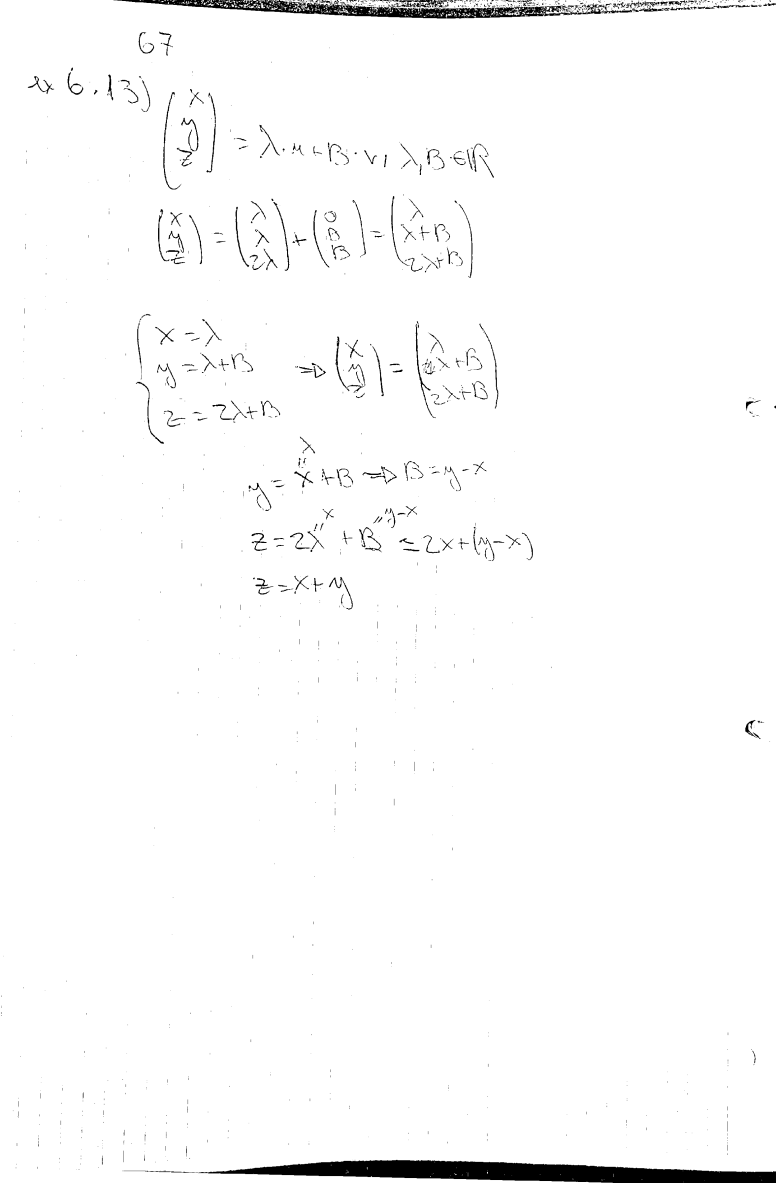 67
ex 6.13) (x y z) = λ·u+B·v, λ,B∈ℝ
(x y z) = (λ λ 2λ) + (0 B B) = (λ λ+B 2λ+B)
{ x = λ
y = λ+B ⇒ (x y z) = (λ λ+B 2λ+B)
z = 2λ+B
λ
"
y = x + B ⇒ B = y-x
x " y-x
z = 2λ" + B = 2x+(y-x)
z = x+y